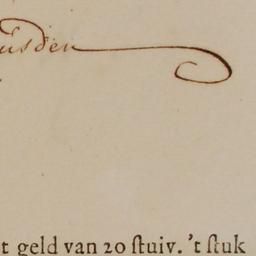 usden
t geld van 20 ſtuiv. 't ſtuk